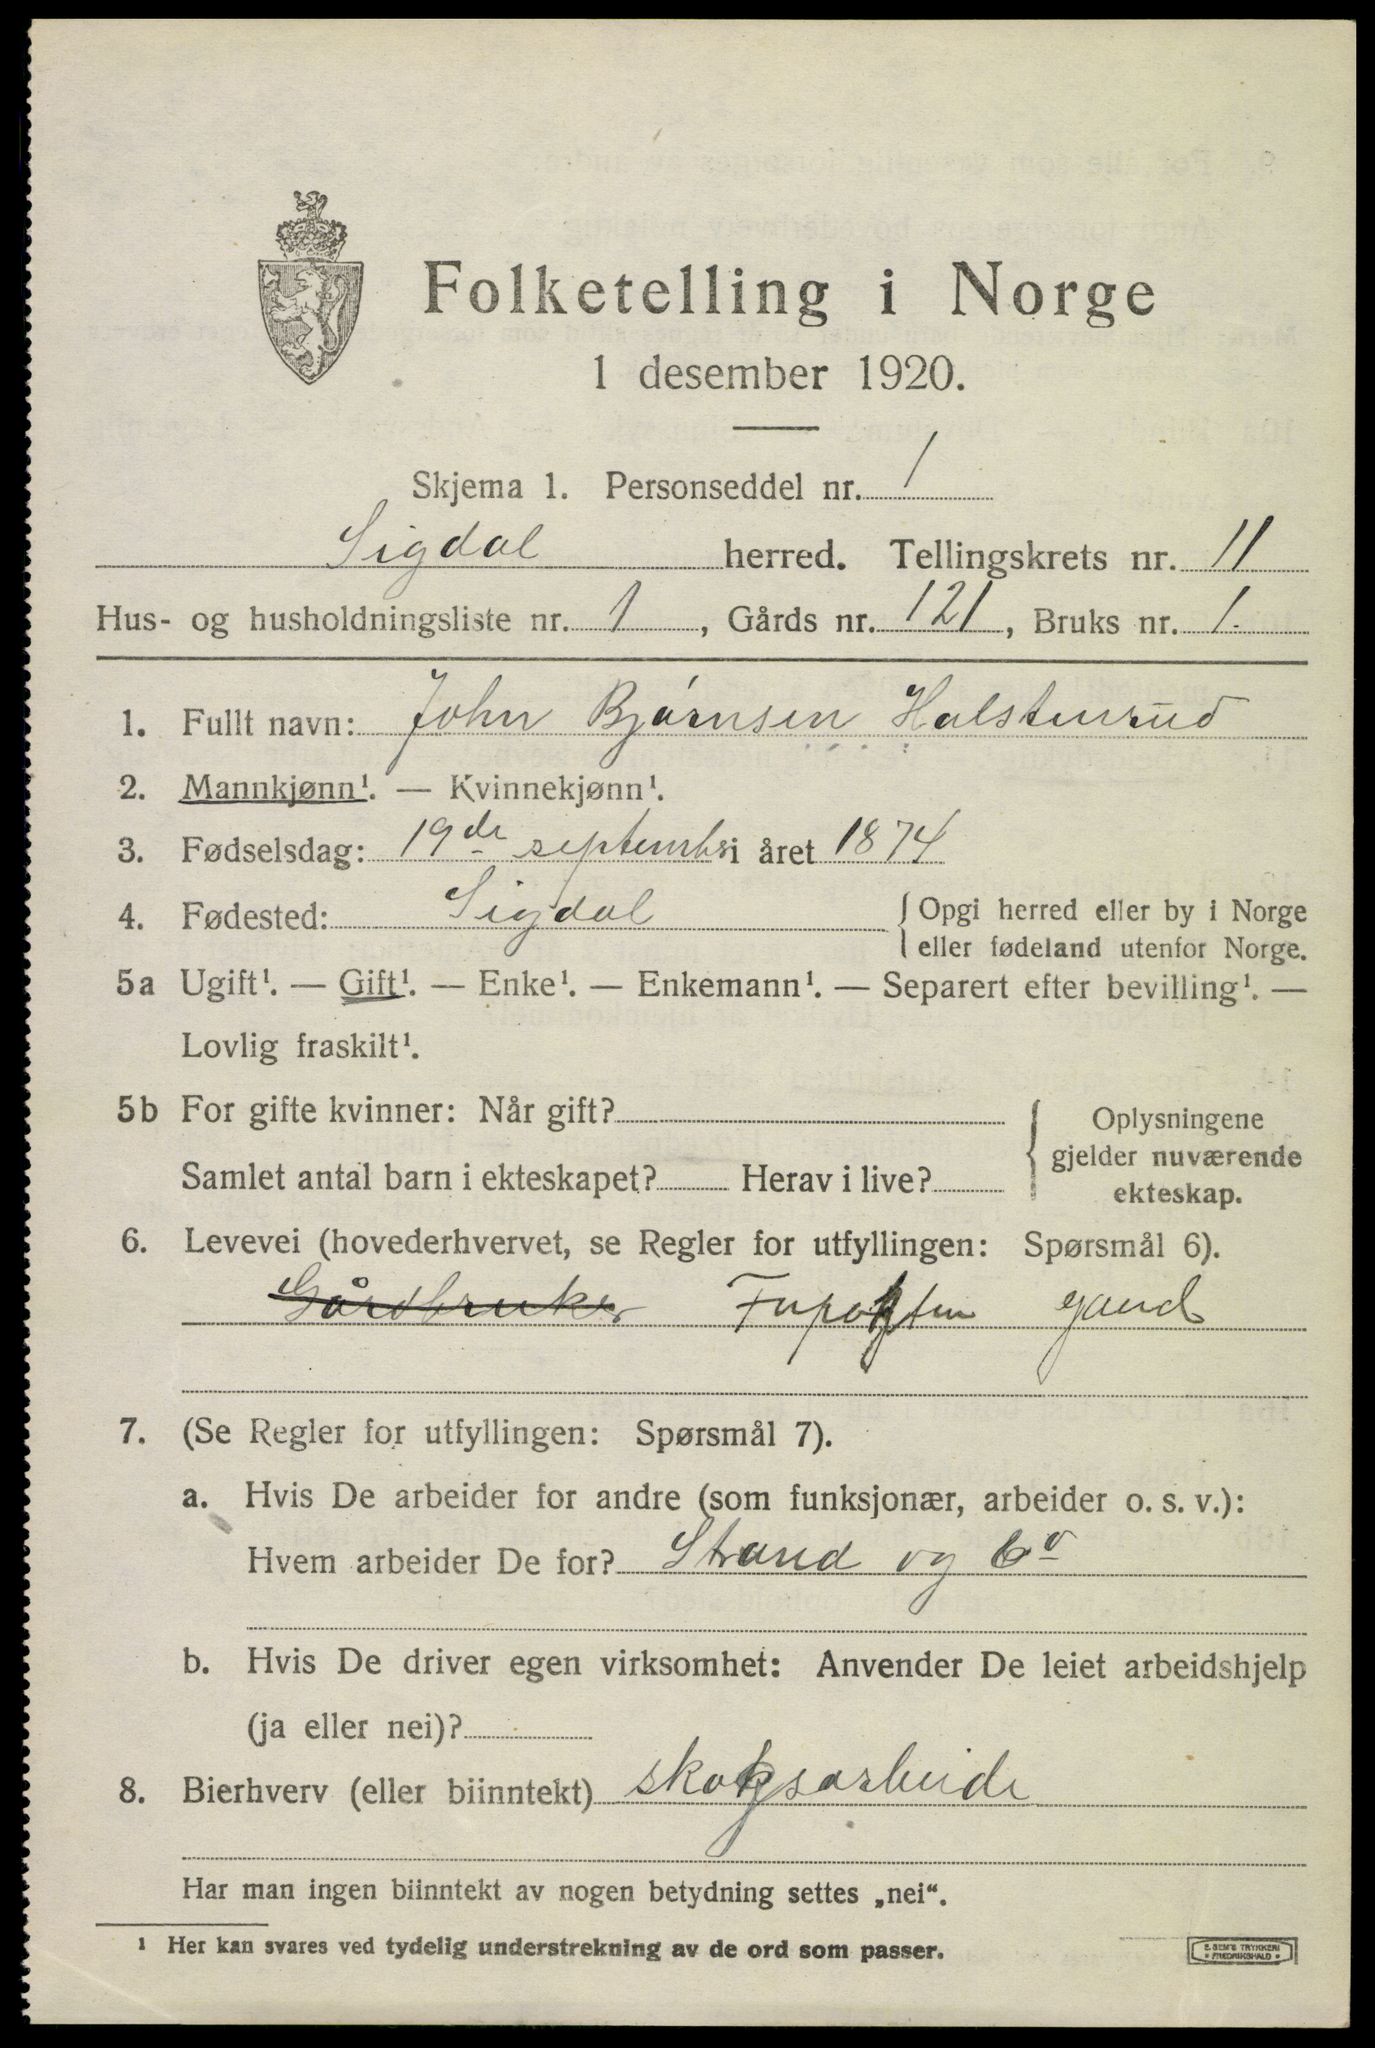 Folketelling i Norge
1 desember 1920.
Skjema 1. Personseddel nr. 1
Sigdal herred. Tellingskrets nr. 11
Hus- og husholdningsliste nr. 1, Gårds nr. 121, Bruks nr. 1.
1. Fullt navn: John Bjørnsen Halstenrud
2. Mannkjønn¹. — Kvinnekjønn¹.
3. Fødselsdag: 19de september i året 1874
4. Fødested: Sigdal { Opgi herred eller by i Norge
eller fødeland utenfor Norge.
5a Ugift¹. — Gift¹. — Enke¹. — Enkemann¹. — Separert efter bevilling¹. —
Lovlig fraskilt¹.
5b For gifte kvinner: Når gift?
Samlet antal barn i ekteskapet? Herav i live?
{ Oplysningene
gjelder nuværende
ekteskap.
6. Levevei (hovederhvervet, se Regler for utfyllingen: Spørsmål 6).
Gårdbruker
7. (Se Regler for utfyllingen: Spørsmål 7).
a. Hvis De arbeider for andre (som funksjonær, arbeider o. s. v.):
Hvem arbeider De for? Strand og Co
b. Hvis De driver egen virksomhet: Anvender De leiet arbeidshjelp
(ja eller nei)?
8. Bierhverv (eller biinntekt) skogsarbeide
Har man ingen biinntekt av nogen betydning settes „nei“.
¹ Her kan svares ved tydelig understrekning av de ord som passer.
E. SEM'S TRYKKERI
• FREDRIKSHALD •